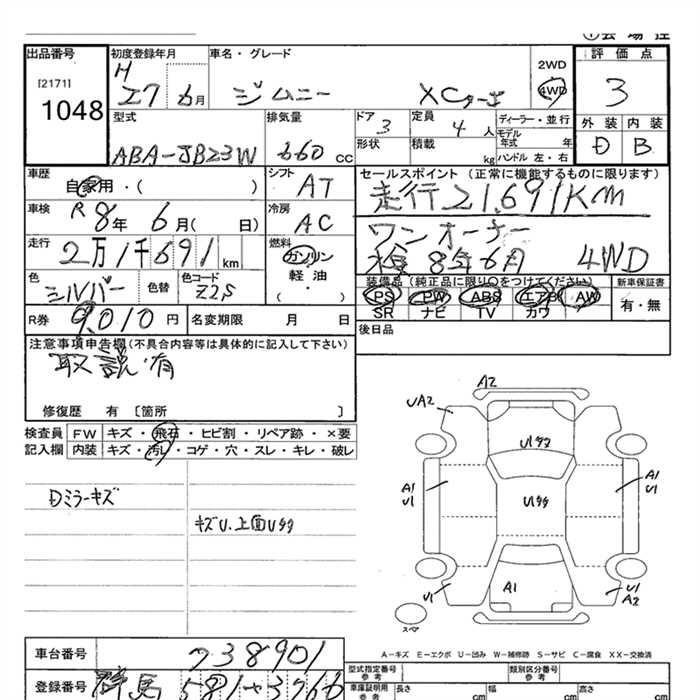 出品番号
[2171]
1048
初度登録年月
H
27 6月
車名・グレード
ジムニー XCターボ
2WD
4WD
評価点
3
外装 内装
D B
型式
ABA-JB23W
排気量
660 cc
ドア
3
定員
4 人
形状
積載
kg
ディーラー・並行
モデル
年式 年
ハンドル 左・右
車歴
自家用・( )
シフト
AT
車検
R8年 6月( 日)
冷房
AC
走行
2万1千691 km
燃料
ガソリン
軽油
( )
色
シルバー
色替
色コード
Z2S
R券
9,010 円
名変期限 月 日
セールスポイント(正常に機能するものに限ります)
走行21,691KM
ワンオーナー
検8年6月 4WD
装備品(純正品に限り○をつけてください)
PS PW ABS エアB AW
SR ナビ TV カワ
新車保証書
有・無
後日品
注意事項申告欄(不具合内容等は具体的に記入して下さい)
取説有
修復歴 有 〔箇所 〕
検査員
記入欄
FW キズ・飛石・ヒビ割・リペア跡・×要
内装 キズ・汚レ・コゲ・穴・スレ・キレ・破レ
Dミラーキズ
キズU、上面Uタタ
A2
UA2
Uタタ
A1
U1
Uタタ
A1
U1
A1
U1
U1
A2
スペア
A-キズ E-エクボ U-凹み W-補修跡 S-サビ C-腐食 XX-交換済
車台番号
738901
登録番号
群馬 581 そ 3766
型式指定番号
参考
類別区分番号
参考
車庫証明用
参考
長さ cm
幅 cm
高さ cm